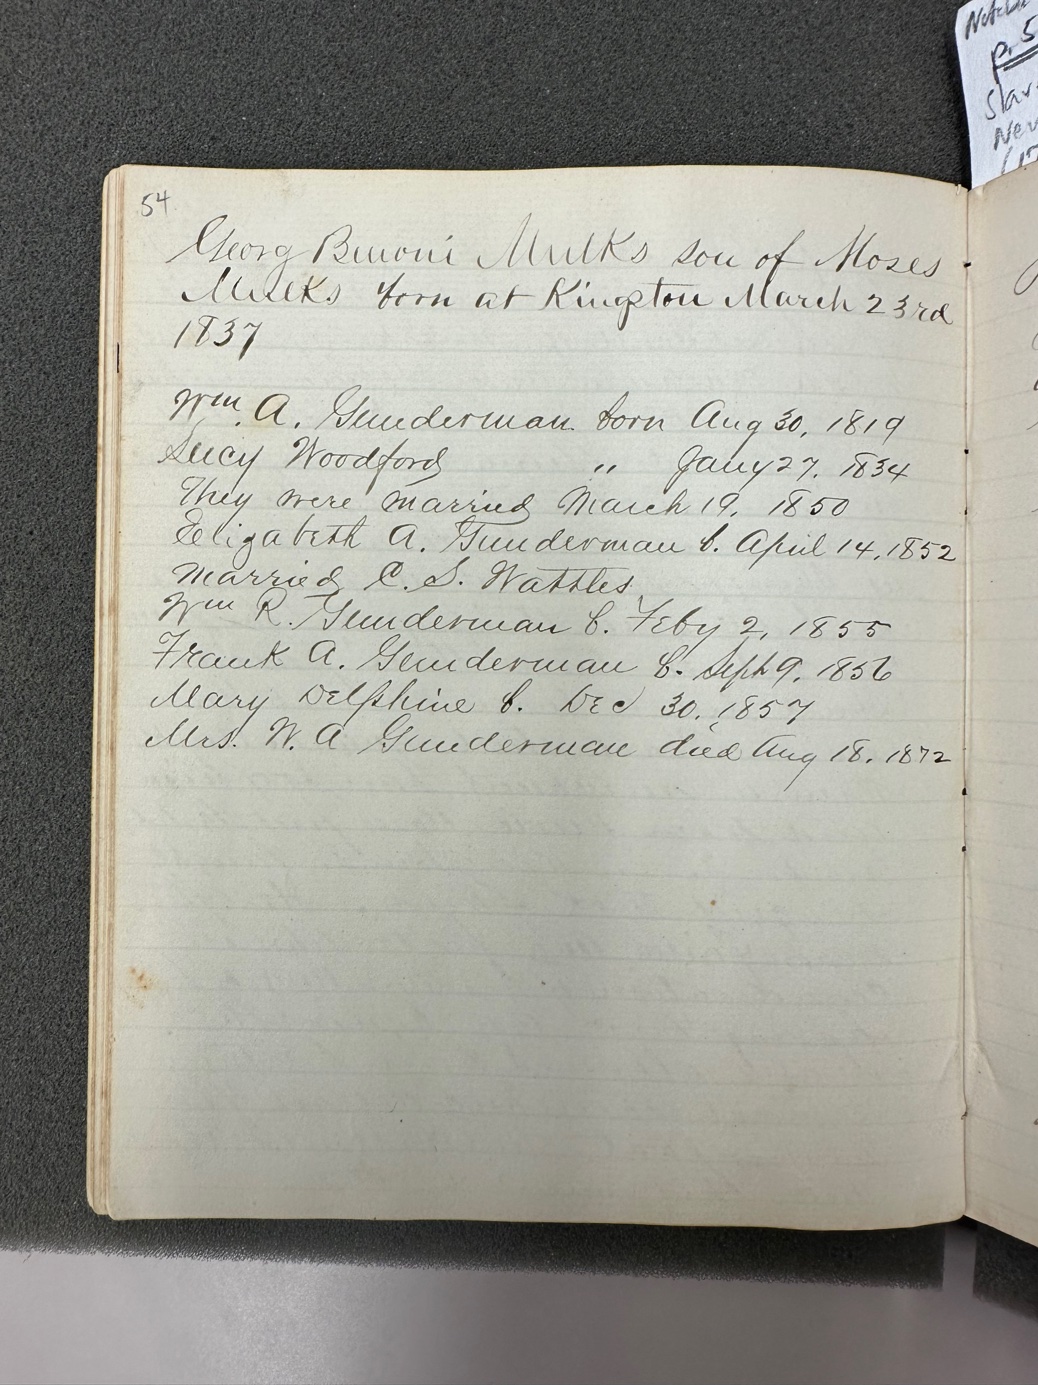 54
Georg Benoni Mulks son of Moses
Mulks born at Kingston March 23rd
1837
Wm. A. Gunderman born Aug 30, 1819
Lucy Woodford " Jany 27, 1834
They were married March 19, 1850
Elizabeth A. Gunderman b. April 14, 1852
married C. S. Wattles,
Wm R. Gunderman b. Feby 2, 1855
Frank A. Gunderman b. Sept 9, 1856
Mary Delphine b. Dec 30, 1857
Mrs. W. A Gunderman died Aug 18, 1872
p. 5